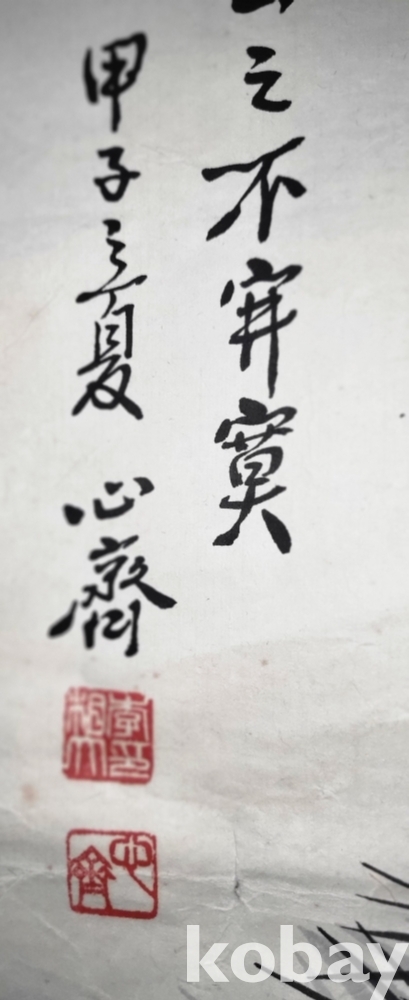 之不寂寞
甲子之夏 心齋
心齊
kobay